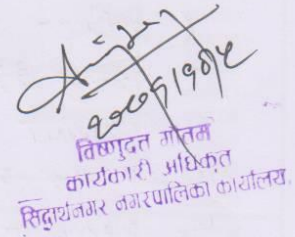 विष्णुदत्त गौतम
कार्यकारी अधिकृत
सिद्धार्थनगर नगरपालिका कार्यालय,